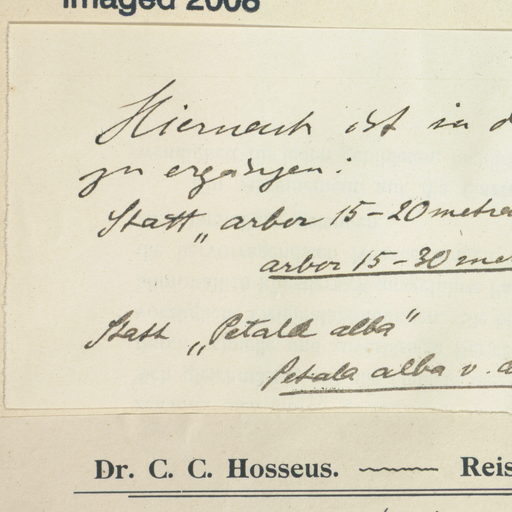 Imaged 2008
Hiernach ist in d
zu ergänzen:
Statt „arbor 15-20 metra
arbor 15-30 me
Statt „Petala alba"
Petala alba v. a
Dr. C. C. Hosseus. Reis